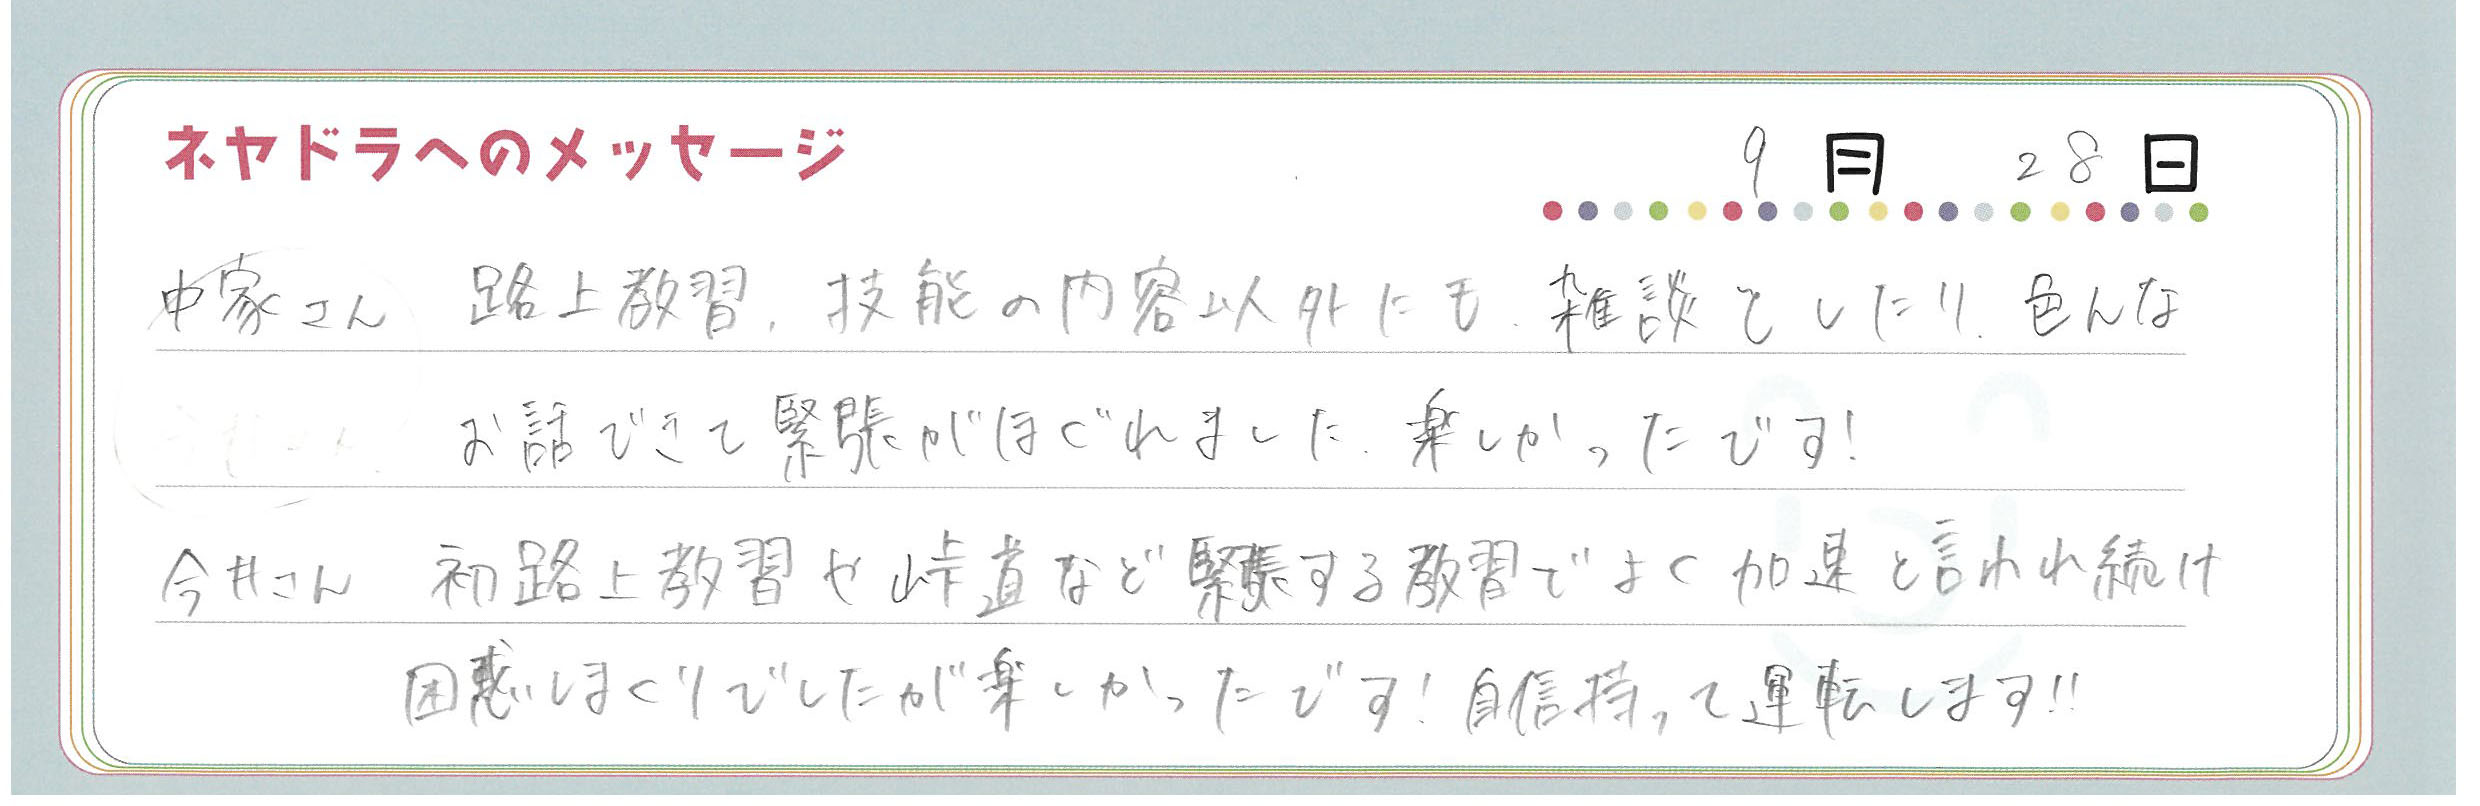 ネヤドラへのメッセージ
9月 28日
中家さん 路上教習、技能の内容以外にも、雑談をしたり、色んな
お話できて緊張がほぐれました。楽しかったです!
今井さん 初路上教習や峠道など緊張する教習でよく加速と言われ続け
困惑しまくりでしたが楽しかったです!自信持って運転します!!